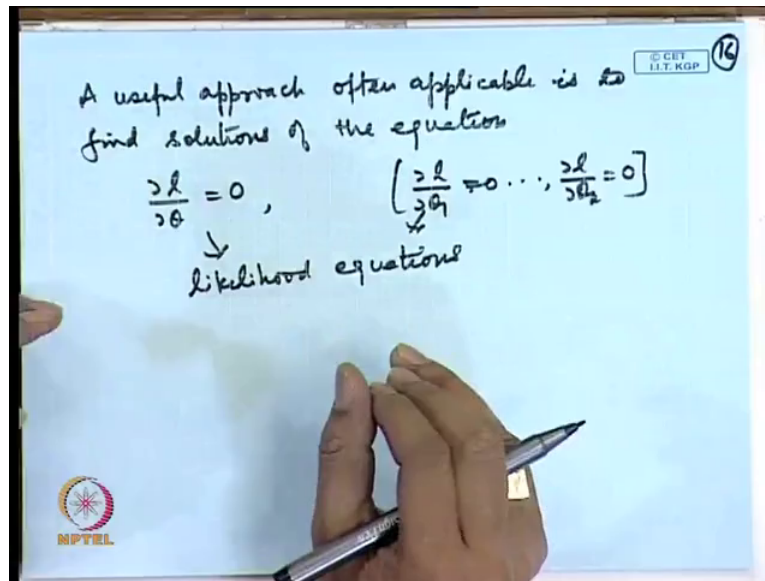 © CET
I.I.T. KGP
16
A useful approach often applicable is to
find solutions of the equation
∂l/∂θ = 0, [∂l/∂θ₁ = 0 ⋯, ∂l/∂θ₂ = 0]
likelihood equations
NPTEL